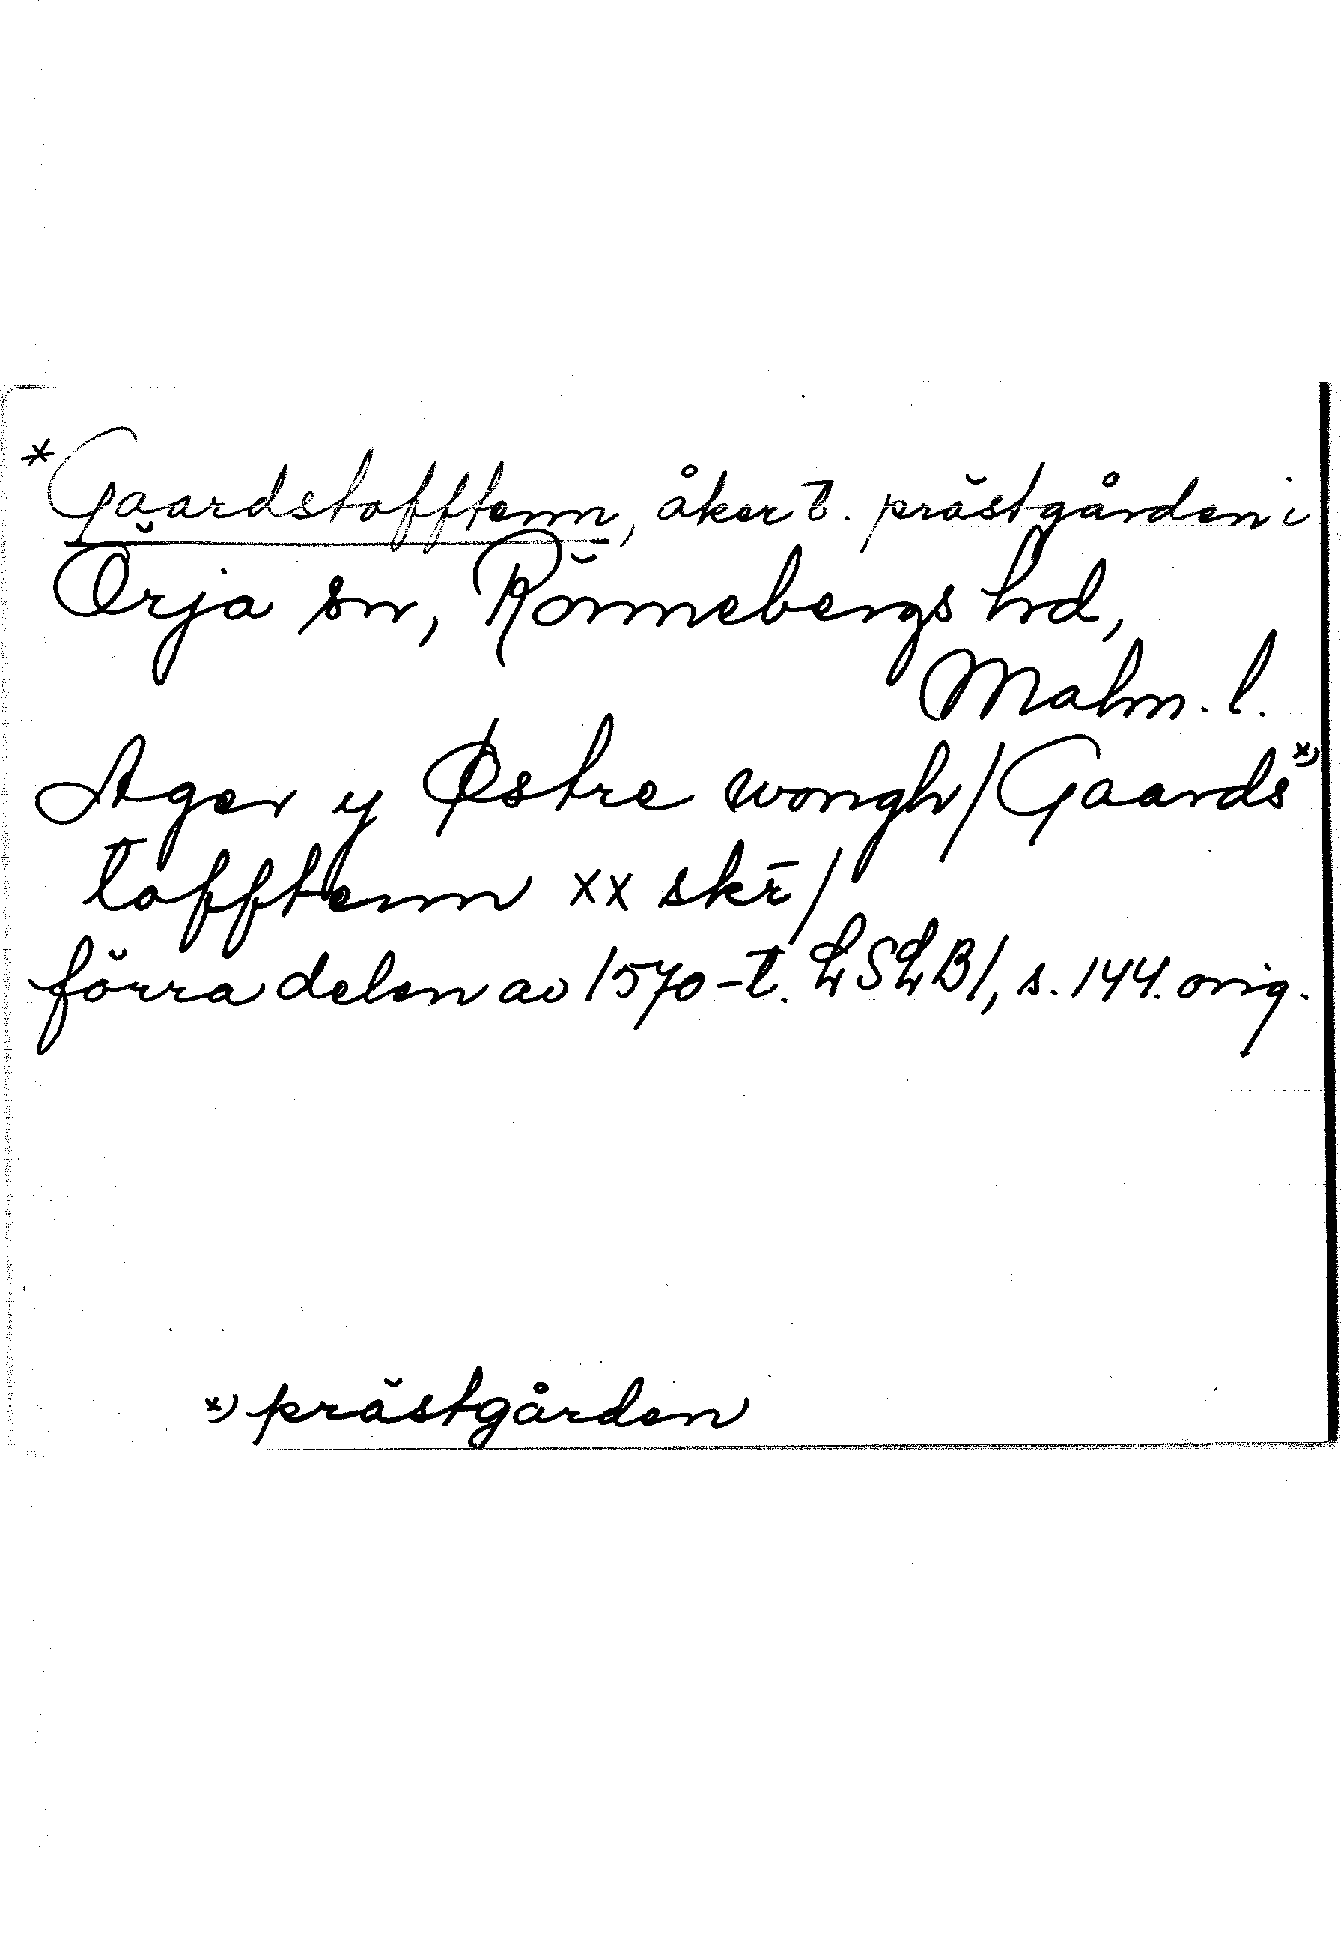 *Gaardstofftenn, åker t. prästgården i
Örja sn, Rönnebergs hd,
Malm. l.
Ager y Østre wongh/Gaards x)
tofftenn xx skr̄/
förra delen av 1570-t. LSLB1, s. 144. orig.
x) prästgården